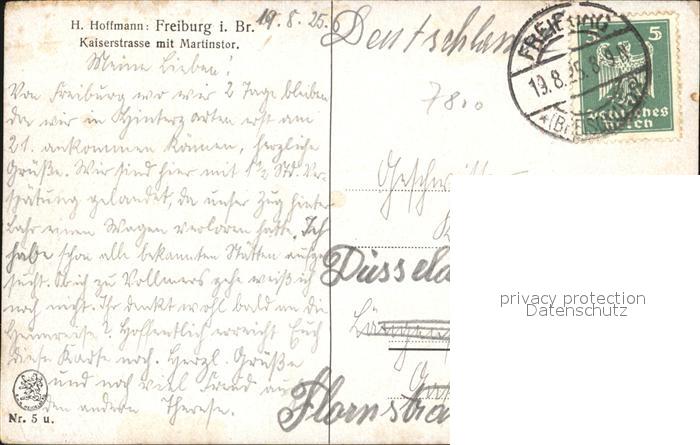 H. Hoffmann: Freiburg i. Br.
Kaiserstrasse mit Martinstor.
19. 8. 25.
Meine Lieben!
Von Freiburg wo wir 2 Tage bleiben
da wir in Hinterzarten erst am
21. ankommen können, herzliche
Grüße. Wir sind hier mit 1½ Std. Ver-
spätung gelandet, da unser Zug hinter
Lahr einen Wagen verloren hatte. Ich
habe schon alle bekannten Stätten aufge-
sucht. Ob ich zu Vollmers gehe weiß ich
noch nicht. Ihr denkt wohl bald an die
Heimreise? Hoffentlich erreicht Euch
diese Karte noch. Herzl. Grüße
und noch viel Freud auf
den andern Therese.
Nr. 5 u.
Deutschlan
FREIBURG
19.8.25. 8-9 N.
(BREISGAU)
5 5
Deutsches
Reich
Geschwister
Düsseldo
Flornstra
privacy protection
Datenschutz